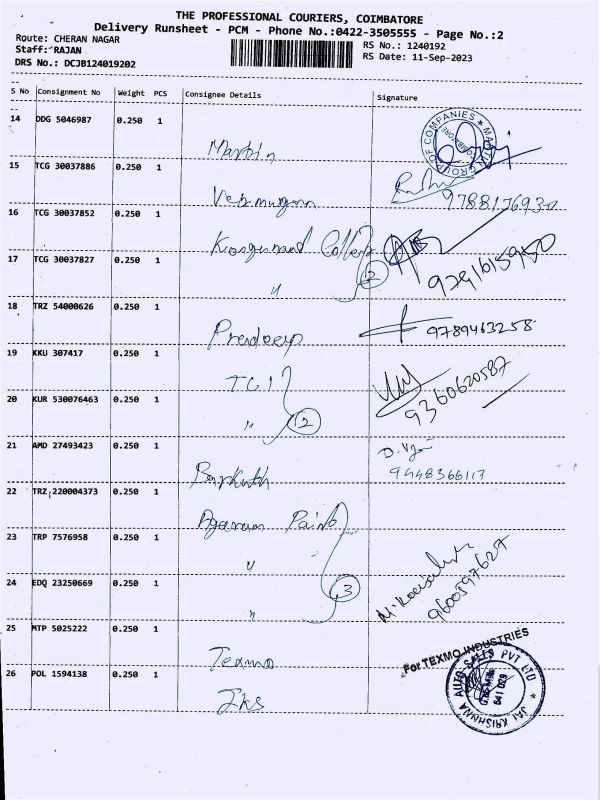 THE PROFESSIONAL COURIERS, COIMBATORE
Delivery Runsheet - PCM - Phone No.:0422-3505555 - Page No.:2
Route: CHERAN NAGAR
RS No.: 1240192
Staff: RAJAN
RS Date: 11-Sep-2023
DRS No.: DCJB124019202
S No Consignment No Weight PCS Consignee Details Signature
14 DDG 5046987 0.250 1
Martin
MARTIN GROUP OF COMPANIES
COIMBATORE
15 TCG 30037886 0.250 1
Velmurugan
9788176930
16 TCG 30037852 0.250 1
Kongunand College
17 TCG 30037827 0.250 1
" 2
9791615950
18 TRZ 54000626 0.250 1
Pradeep
9789463258
19 KKU 307417 0.250 1
TCI
20 KUR 530076463 0.250 1
" 2
9360620587
21 AMD 27493423 0.250 1
Barkath
9448366117
22 TRZ 220004373 0.250 1
Agaram Paints
23 TRP 7576958 0.250 1
"
24 EDQ 23250669 0.250 1
" 3
9600597627
25 MTP 5025222 0.250 1
Texmo
For TEXMO INDUSTRIES
26 POL 1594138 0.250 1
Jks
JAI KRISHNNA AUTO SALES PVT LTD
641 029